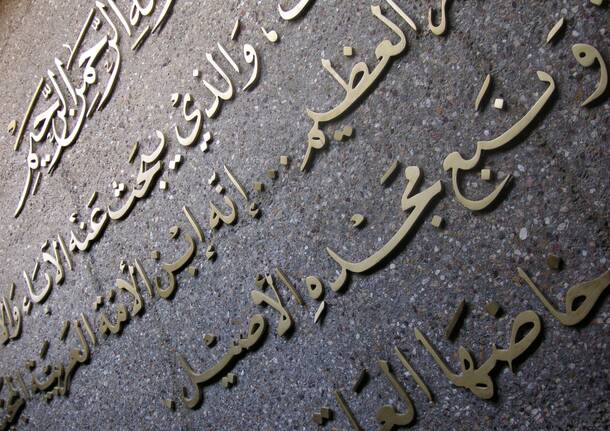 الرحمن الرحيم
والذي يبحث عنه الآباء
العظيم ... إنه ابن الأمة العربية
ونبع مجده الأصيل.